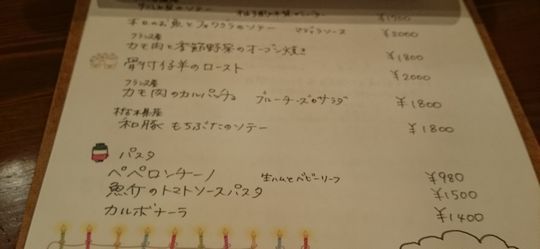 ¥1900
本日のお魚とフォワグラのソテー マデラソース ¥2000
フランス産
カモ肉と季節野菜のオーブン焼き ¥1800
骨付仔羊のロースト ¥2000
フランス産
カモ肉のカルパッチョ ブルーチーズのサラダ ¥1800
栃木県産
和豚もちぶたのソテー ¥1800
パスタ
ペペロンチーノ 生ハムとベビーリーフ ¥980
魚介のトマトソースパスタ ¥1500
カルボナーラ ¥1400